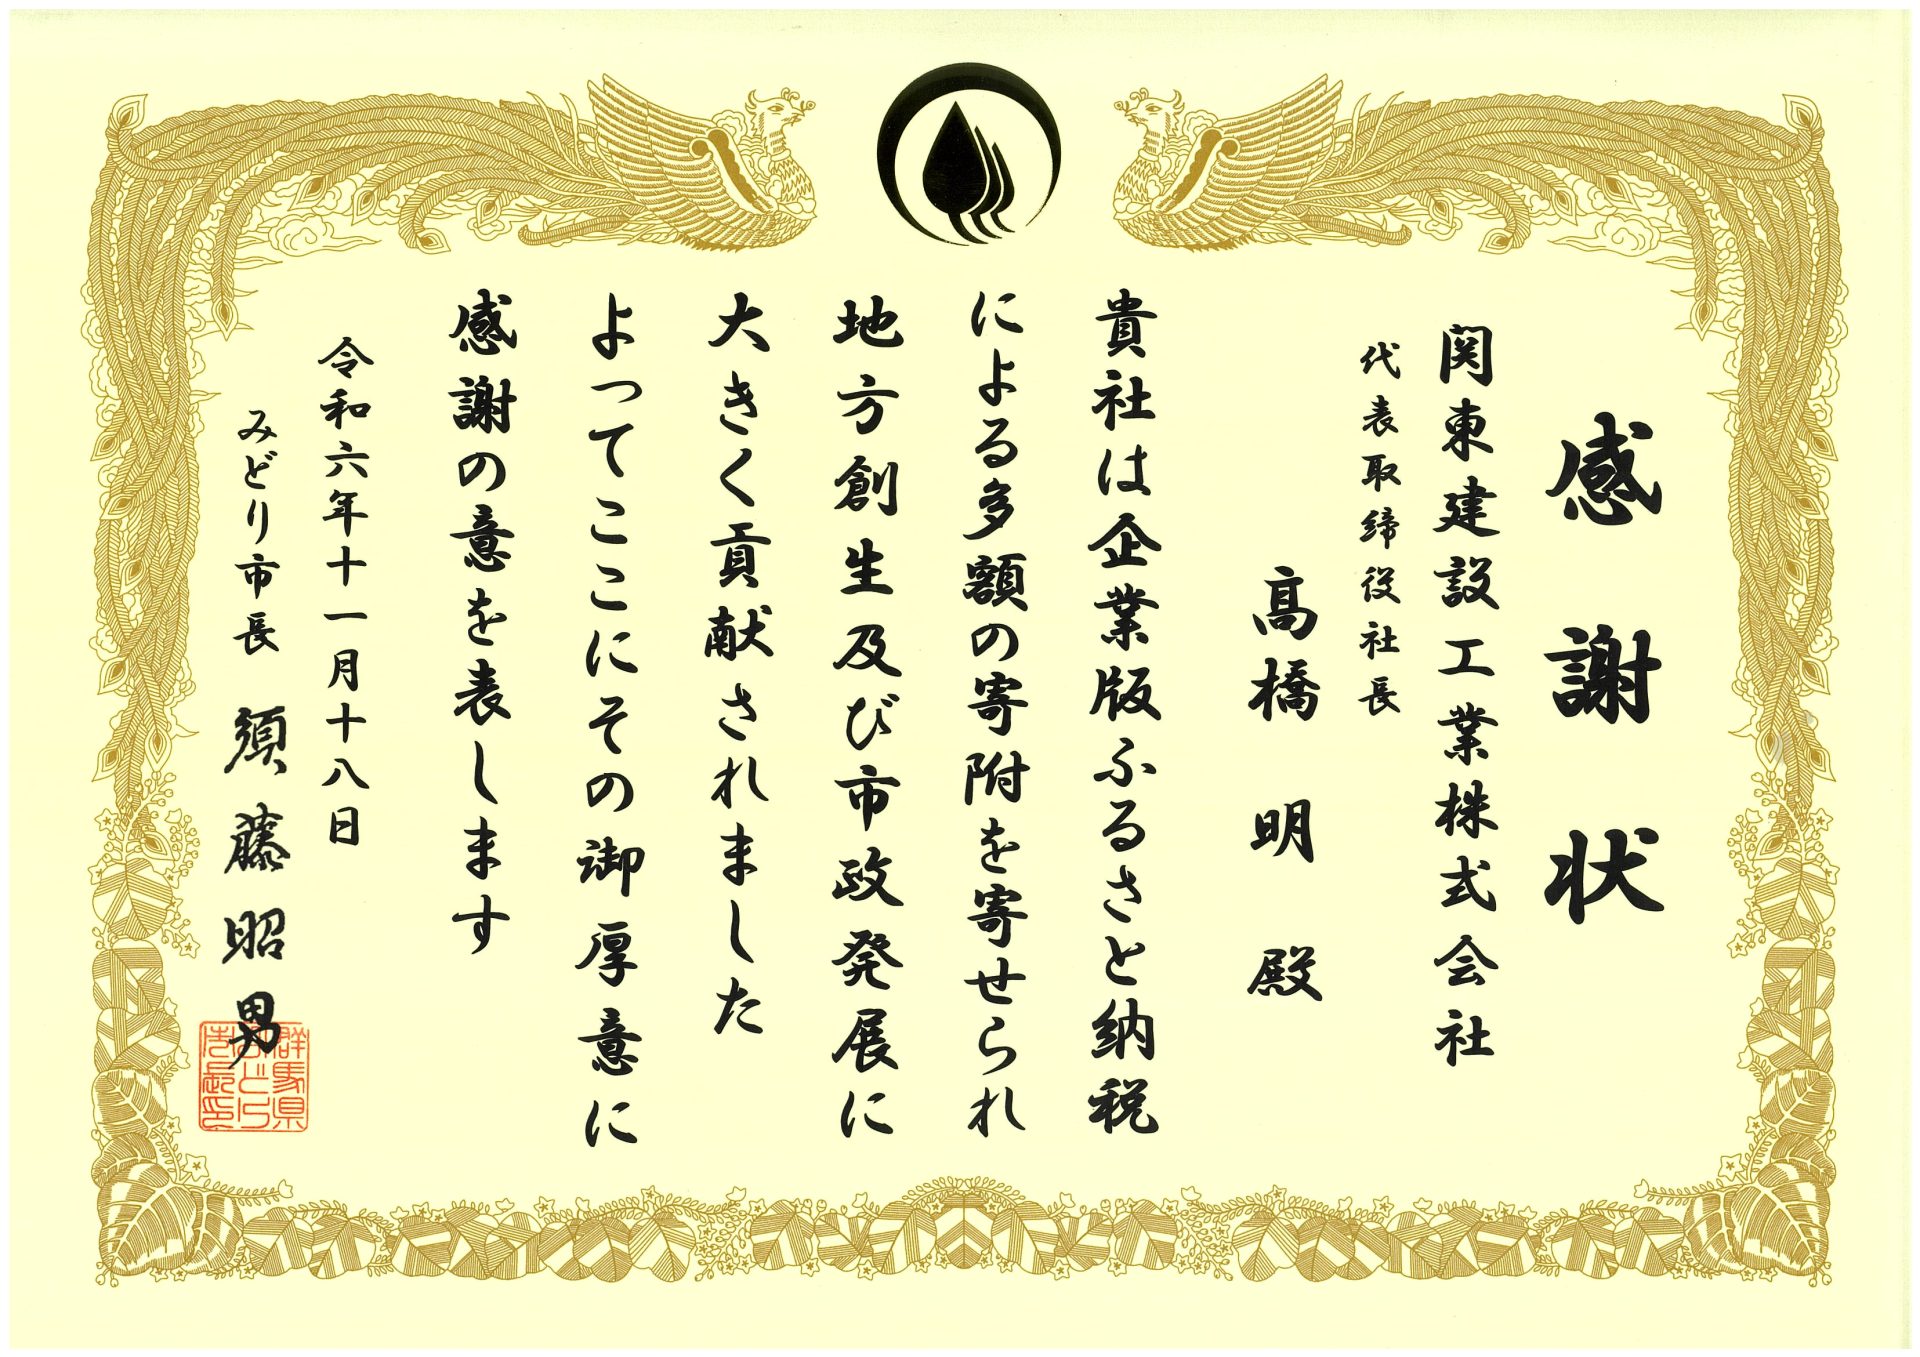 感謝状
関東建設工業株式会社
代表取締役社長
髙橋明殿
貴社は企業版ふるさと納税
による多額の寄附を寄せられ
地方創生及び市政発展に
大きく貢献されました
よってここにその御厚意に
感謝の意を表します
令和六年十一月十八日
みどり市長 須藤昭男
群馬県
みどり
市長印